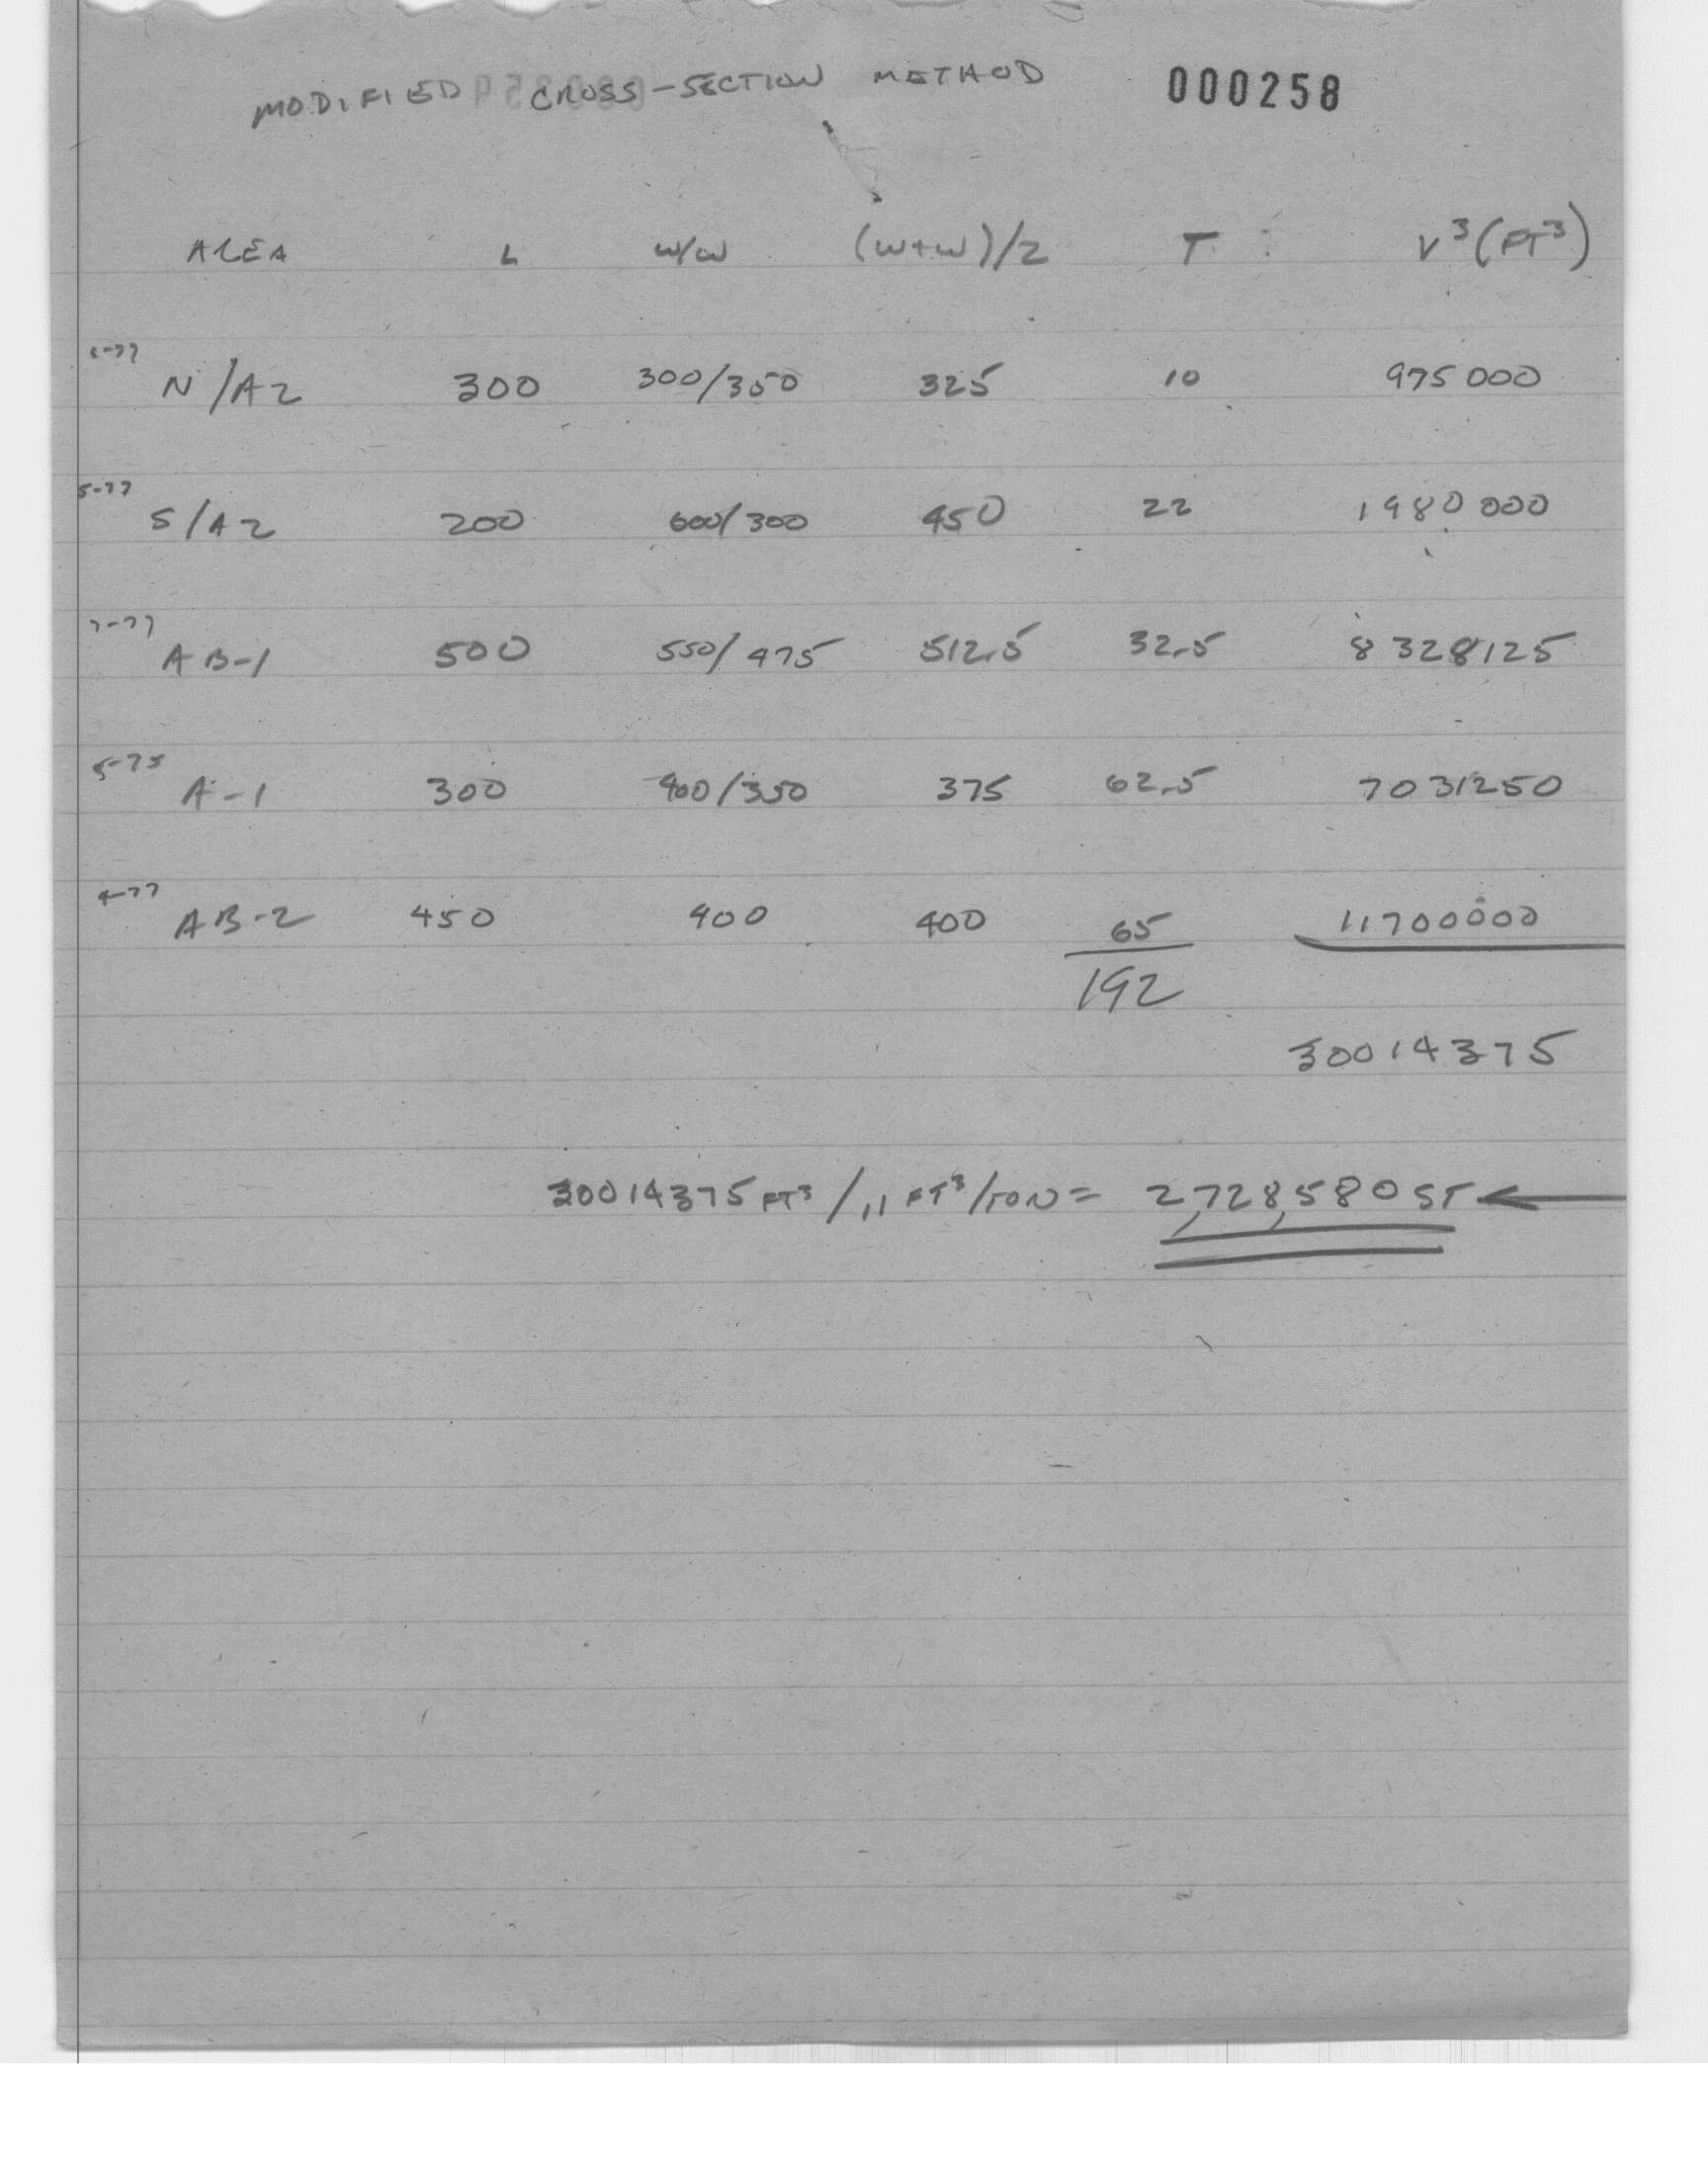 MODIFIED CROSS-SECTION METHOD 000258
AREA L W/W (W+W)/2 T V³(FT³)
N/A2 300 300/350 325 10 975000
5-77
S/A2 200 600/300 450 22 1980000
7-77
AB-1 500 550/475 512.5 32.5 8328125
5-75
A-1 300 400/350 375 62.5 7031250
4-77
AB-2 450 400 400 65 11700000
192
30014375
30014375 FT³/11 FT³/TON = 2,728,580 ST